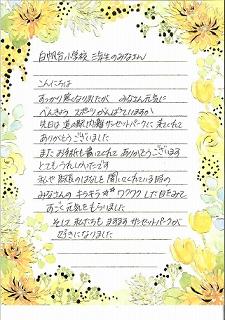 白帆台小学校 三年生のみなさん
こんにちは
すっかり寒くなりましたが みなさん元気に
べんきょう スポーツ がんばっていますか
先日は 道の駅 内灘サンセットパークに 来てくれて
ありがとうございました
また お手紙も書いてくれて ありがとうございます
とても うれしかったです
私や 駅長のはなしを 聞いてくれている時の
みなさんの キラキラ ワクワク した目をみて
すごく元気をもらいました
そして 私たちも ますます サンセットパークが
好きになりました